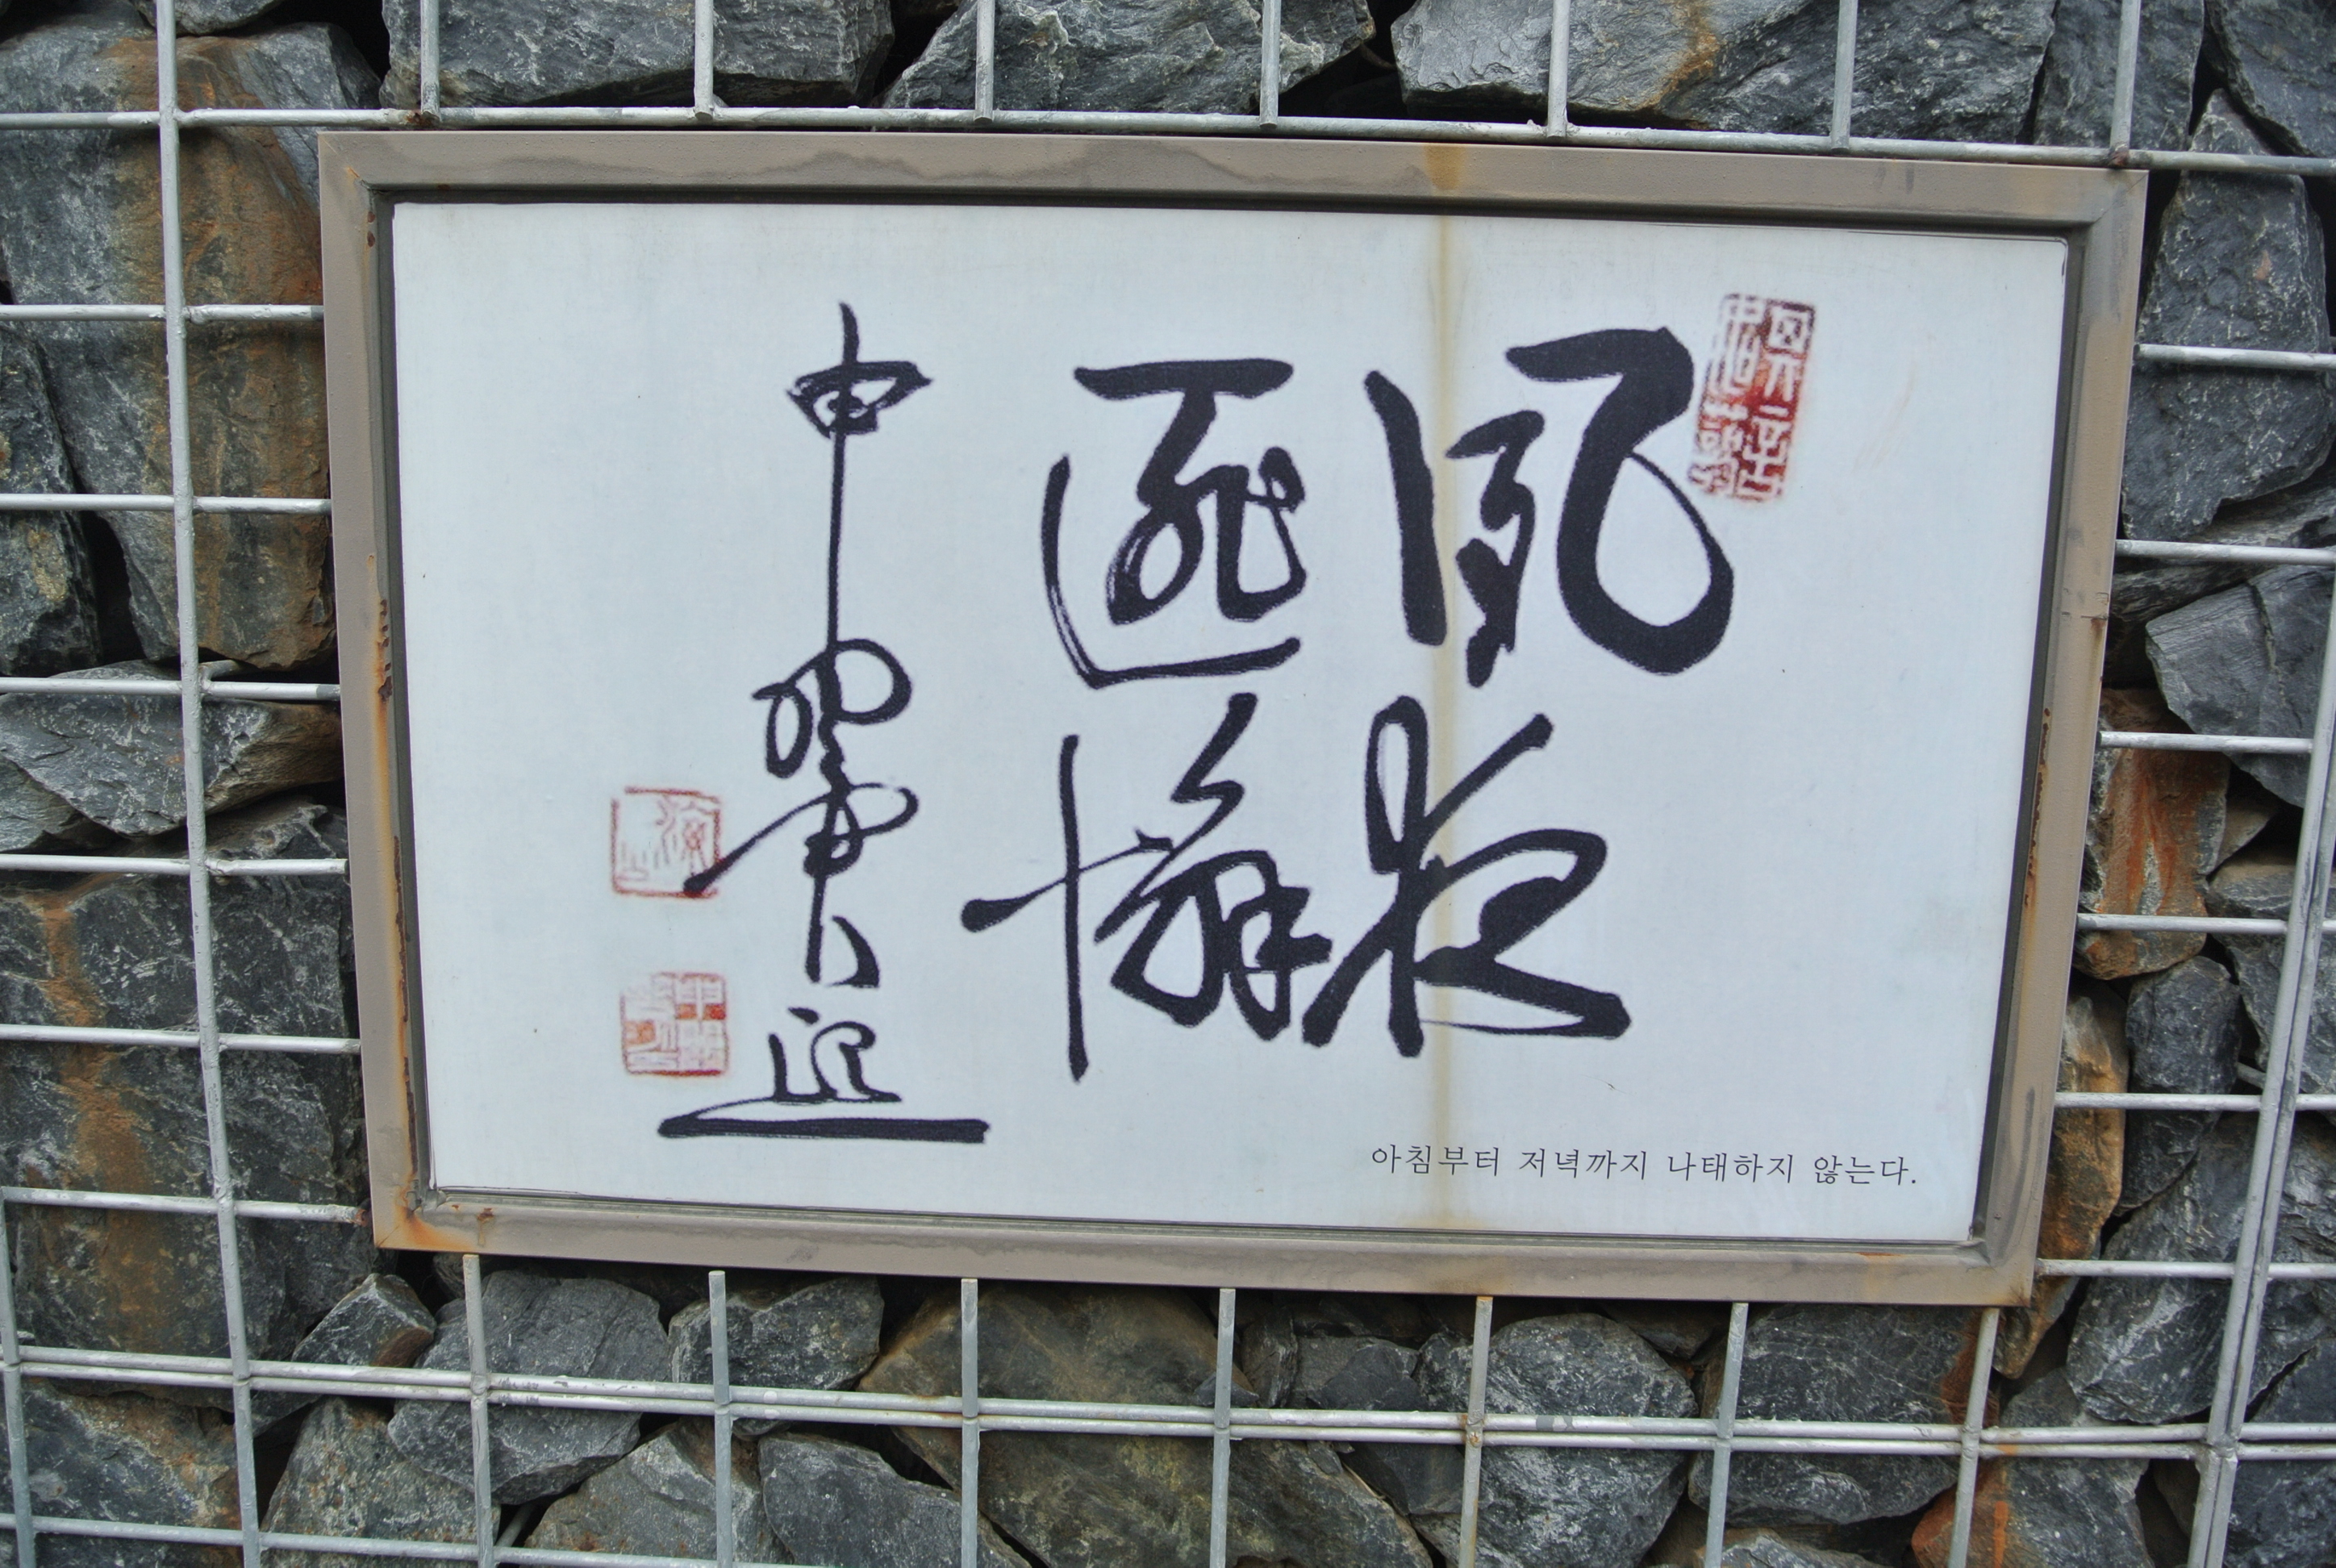 夙夜
匪懈
申翼熙
아침부터 저녁까지 나태하지 않는다.